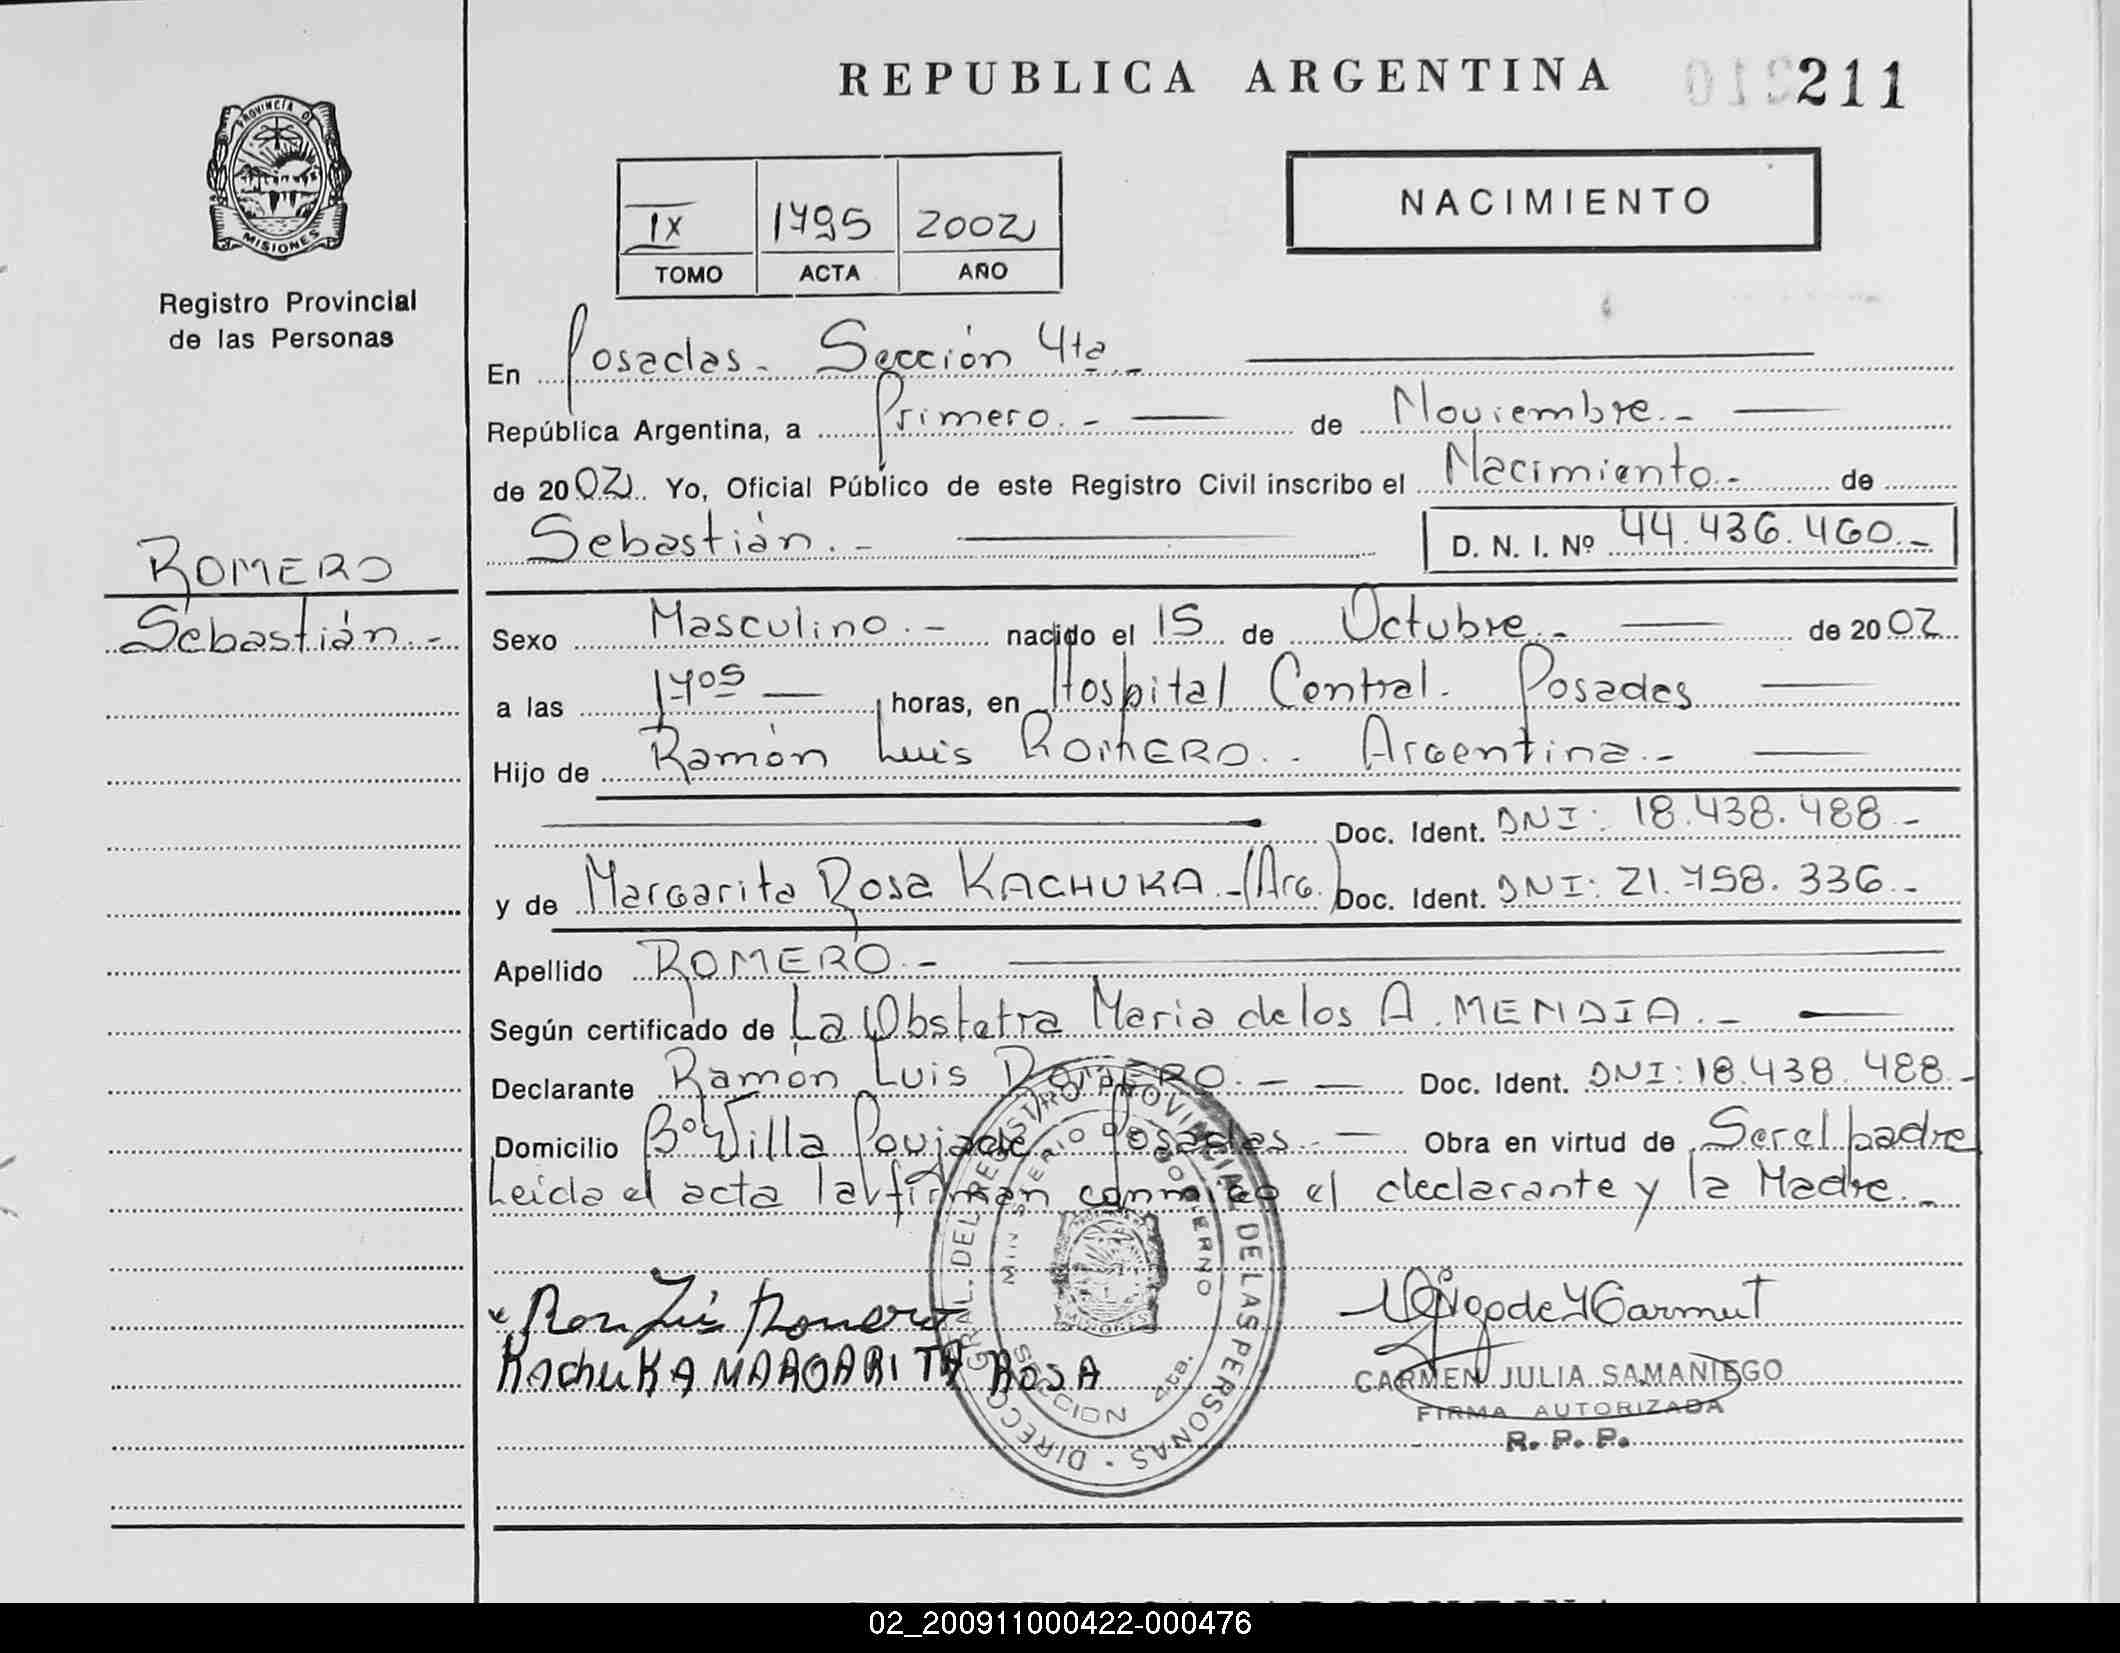 REPUBLICA ARGENTINA 211
PROVINCIA DE MISIONES
Registro Provincial
de las Personas
IX 1795 2002
TOMO ACTA AÑO
NACIMIENTO
En Posadas.- Sección 4ta.-
República Argentina, a Primero.- de Noviembre.-
de 2002. Yo, Oficial Público de este Registro Civil inscribo el Nacimiento.- de
Sebastián.- D. N. I. Nº 44.436.460.-
ROMERO
Sebastián.-
Sexo Masculino.- nacido el 15 de Octubre.- de 2002
a las 17 05 horas, en Hospital Central. Posadas
Hijo de Ramón Luis ROMERO.- Argentina.-
Doc. Ident. DNI: 18.438.488.-
y de Margarita Rosa KACHUKA.-(Arg.) Doc. Ident. DNI: 21.758.336.-
Apellido ROMERO.-
Según certificado de La Obstetra Maria de los A. MENDIA.-
Declarante Ramón Luis ROMERO.- Doc. Ident. DNI: 18.438.488.-
Domicilio Bº Villa Poujade Posadas.- Obra en virtud de Ser el padre
Leida el acta la firman conmigo el declarante y la Madre.-
Romero
KachuKA MARGARITA ROSA
DIRECC. GRAL. DEL REGISTRO PROVINCIAL DE LAS PERSONAS
MINISTERIO DE GOBIERNO
SECCION 4ta.
CARMEN JULIA SAMANIEGO
FIRMA AUTORIZADA
R. P. P.
02_200911000422-000476